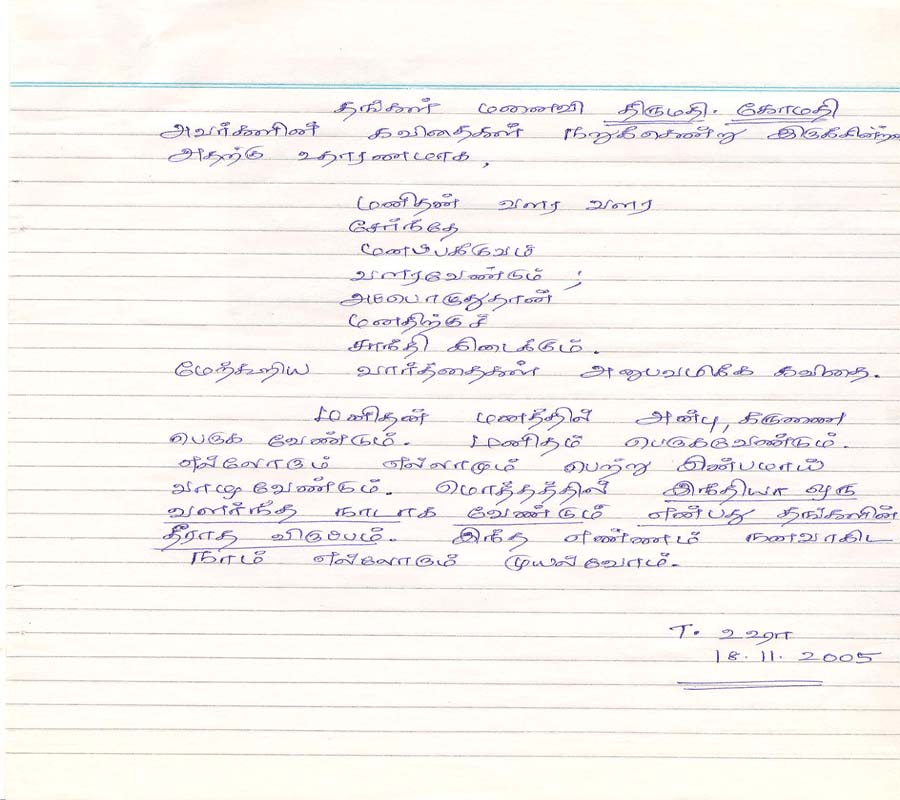 தங்கள் மனைவி திருமதி. கோமதி
அவர்களின் கவிதைகள் நறுக்கென்று இருக்கின்றன
அதற்கு உதாரணமாக,
மனிதன் வளர வளர
சேர்ந்தே
மனப்பக்குவம்
வளரவேண்டும் ;
அப்பொழுதுதான்
மனதிற்குச்
சாந்தி கிடைக்கும்.
மேற்கூறிய வார்த்தைகள் அனுபவமிகு கவிதை.
மனிதன் மனத்தில் அன்பு, கருணை
பெருக வேண்டும். மனிதம் பெருகவேண்டும்.
எல்லோரும் எல்லாமும் பெற்று இன்பமாய்
வாழவேண்டும். மொத்தத்தில் இந்தியா ஒரு
வளர்ந்த நாடாக வேண்டும் என்பது தங்களின்
தீராத விருப்பம். இந்த எண்ணம் நனவாகிட
நாம் எல்லோரும் முயல்வோம்.
T. உஷா
18.11.2005